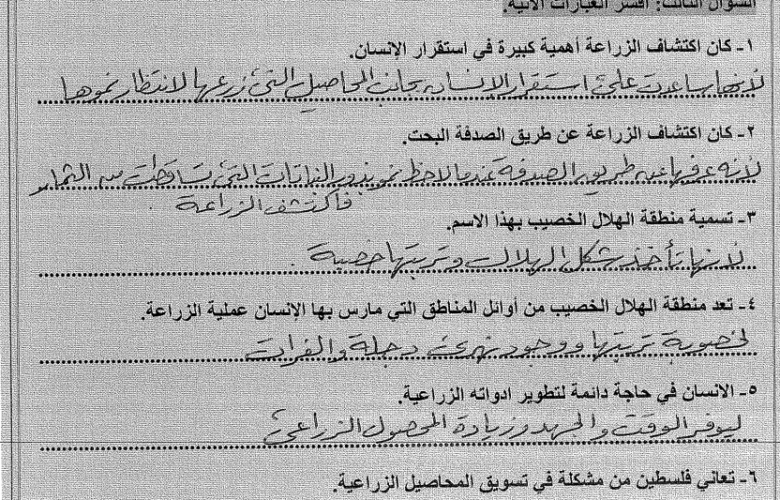 السؤال الثالث: أفسر العبارات الآتية.
١- كان اكتشاف الزراعة أهمية كبيرة في استقرار الإنسان.
لأنها ساعدت على استقرار الإنسان بجانب المحاصيل التي زرعها لانتظار نموها
٢- كان اكتشاف الزراعة عن طريق الصدفة البحت.
لأنه عرفها عن طريق الصدفة عندما لاحظ نمو بذور النباتات التي تساقطت من الثمار
فاكتشف الزراعة .
٣- تسمية منطقة الهلال الخصيب بهذا الاسم.
لانها تأخذ شكل الهلال وتربتها خصبة .
٤- تعد منطقة الهلال الخصيب من أوائل المناطق التي مارس بها الإنسان عملية الزراعة.
لخصوبة تربتها ووجود نهري دجلة والفرات
٥- الانسان في حاجة دائمة لتطوير ادواته الزراعية.
ليوفر الوقت والجهد وزيادة المحصول الزراعي
٦- تعاني فلسطين من مشكلة في تسويق المحاصيل الزراعية.